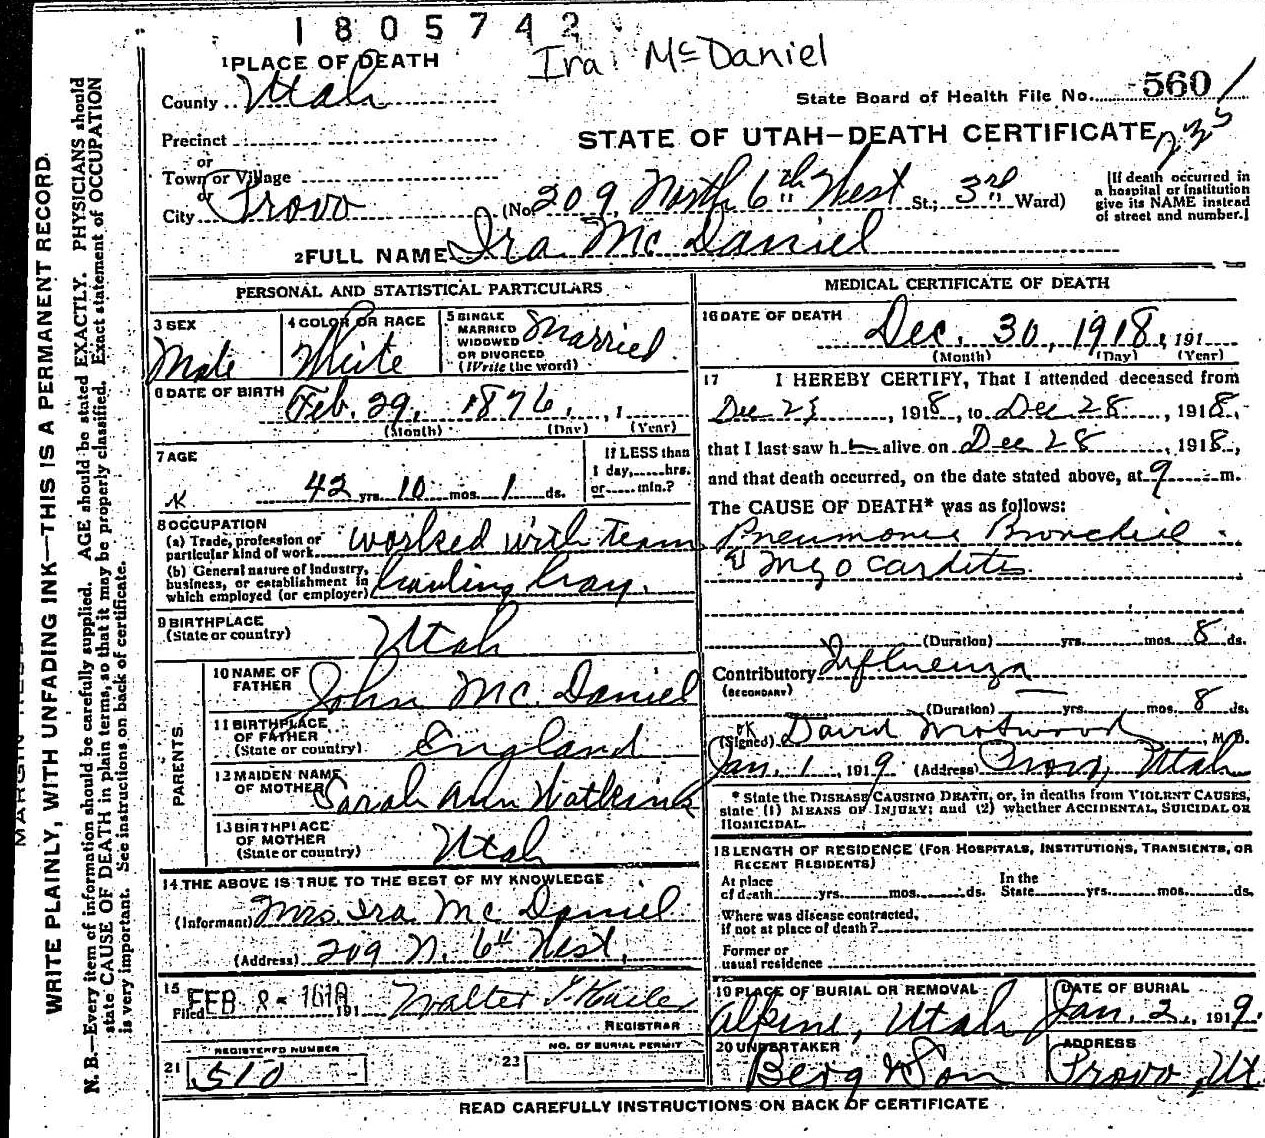 1805742
Ira McDaniel
1 PLACE OF DEATH
County Utah
State Board of Health File No. 560
235
Precinct
or
Town or Village
or
City Provo
STATE OF UTAH—DEATH CERTIFICATE
(No. 209 North 6th West St.; 3rd Ward)
[If death occurred in a hospital or institution give its NAME instead of street and number.]
2 FULL NAME Ira Mc Daniel
PERSONAL AND STATISTICAL PARTICULARS
3 SEX
Male
4 COLOR OR RACE
White
5 SINGLE MARRIED WIDOWED OR DIVORCED (Write the word)
Married
6 DATE OF BIRTH Feb. 29, 1876, , 1
(Month) (Day) (Year)
7 AGE
42 yrs. 10 mos. 1 ds.
If LESS than 1 day,......hrs. or......min.?
8 OCCUPATION
(a) Trade, profession or particular kind of work worked with team
(b) General nature of industry, business, or establishment in which employed (or employer) hauling hay.
9 BIRTHPLACE
(State or country) Utah
PARENTS
10 NAME OF FATHER John Mc. Daniel
11 BIRTHPLACE OF FATHER (State or country) England
12 MAIDEN NAME OF MOTHER Sarah Ann Watkins
13 BIRTHPLACE OF MOTHER (State or country) Utah
14 THE ABOVE IS TRUE TO THE BEST OF MY KNOWLEDGE
(Informant) Mrs Ira Mc Daniel
(Address) 209 N. 6th West,
15
Filed FEB 191 Walter T.
REGISTRAR
REGISTERED NUMBER
21 510
NO. OF BURIAL PERMIT
23
MEDICAL CERTIFICATE OF DEATH
16 DATE OF DEATH
Dec. 30, 1918, 191
(Month) (Day) (Year)
17 I HEREBY CERTIFY, That I attended deceased from
Dec 23, 1918, to Dec 28, 1918,
that I last saw h alive on Dec 28, 1918,
and that death occurred, on the date stated above, at 9 m.
The CAUSE OF DEATH* was as follows:
Pneumonia Bronchial
& Myocarditis
(Duration) yrs. mos. 8 ds.
Contributory Influenza
(SECONDARY)
(Duration) yrs. mos. 8 ds.
(Signed) David M. D.
Jan. 1, 1919 (Address) Provo, Utah
* State the DISEASE CAUSING DEATH, or, in deaths from VIOLENT CAUSES,
state (1) MEANS OF INJURY; and (2) whether ACCIDENTAL, SUICIDAL OR
HOMICIDAL.
18 LENGTH OF RESIDENCE (FOR HOSPITALS, INSTITUTIONS, TRANSIENTS, OR
RECENT RESIDENTS)
At place of death......yrs......mos......ds. In the State......yrs......mos......ds.
Where was disease contracted,
if not at place of death?
Former or
usual residence
19 PLACE OF BURIAL OR REMOVAL
Alpine, Utah
DATE OF BURIAL
Jan. 2, 1919.
20 UNDERTAKER
Berg & Son
ADDRESS
Provo, Ut.
READ CAREFULLY INSTRUCTIONS ON BACK OF CERTIFICATE
WRITE PLAINLY, WITH UNFADING INK—THIS IS A PERMANENT RECORD
N. B.—Every item of information should be carefully supplied. AGE should be stated EXACTLY. PHYSICIANS should
state CAUSE OF DEATH in plain terms, so that it may be properly classified. Exact statement of OCCUPATION
is very important. See instructions on back of certificate.